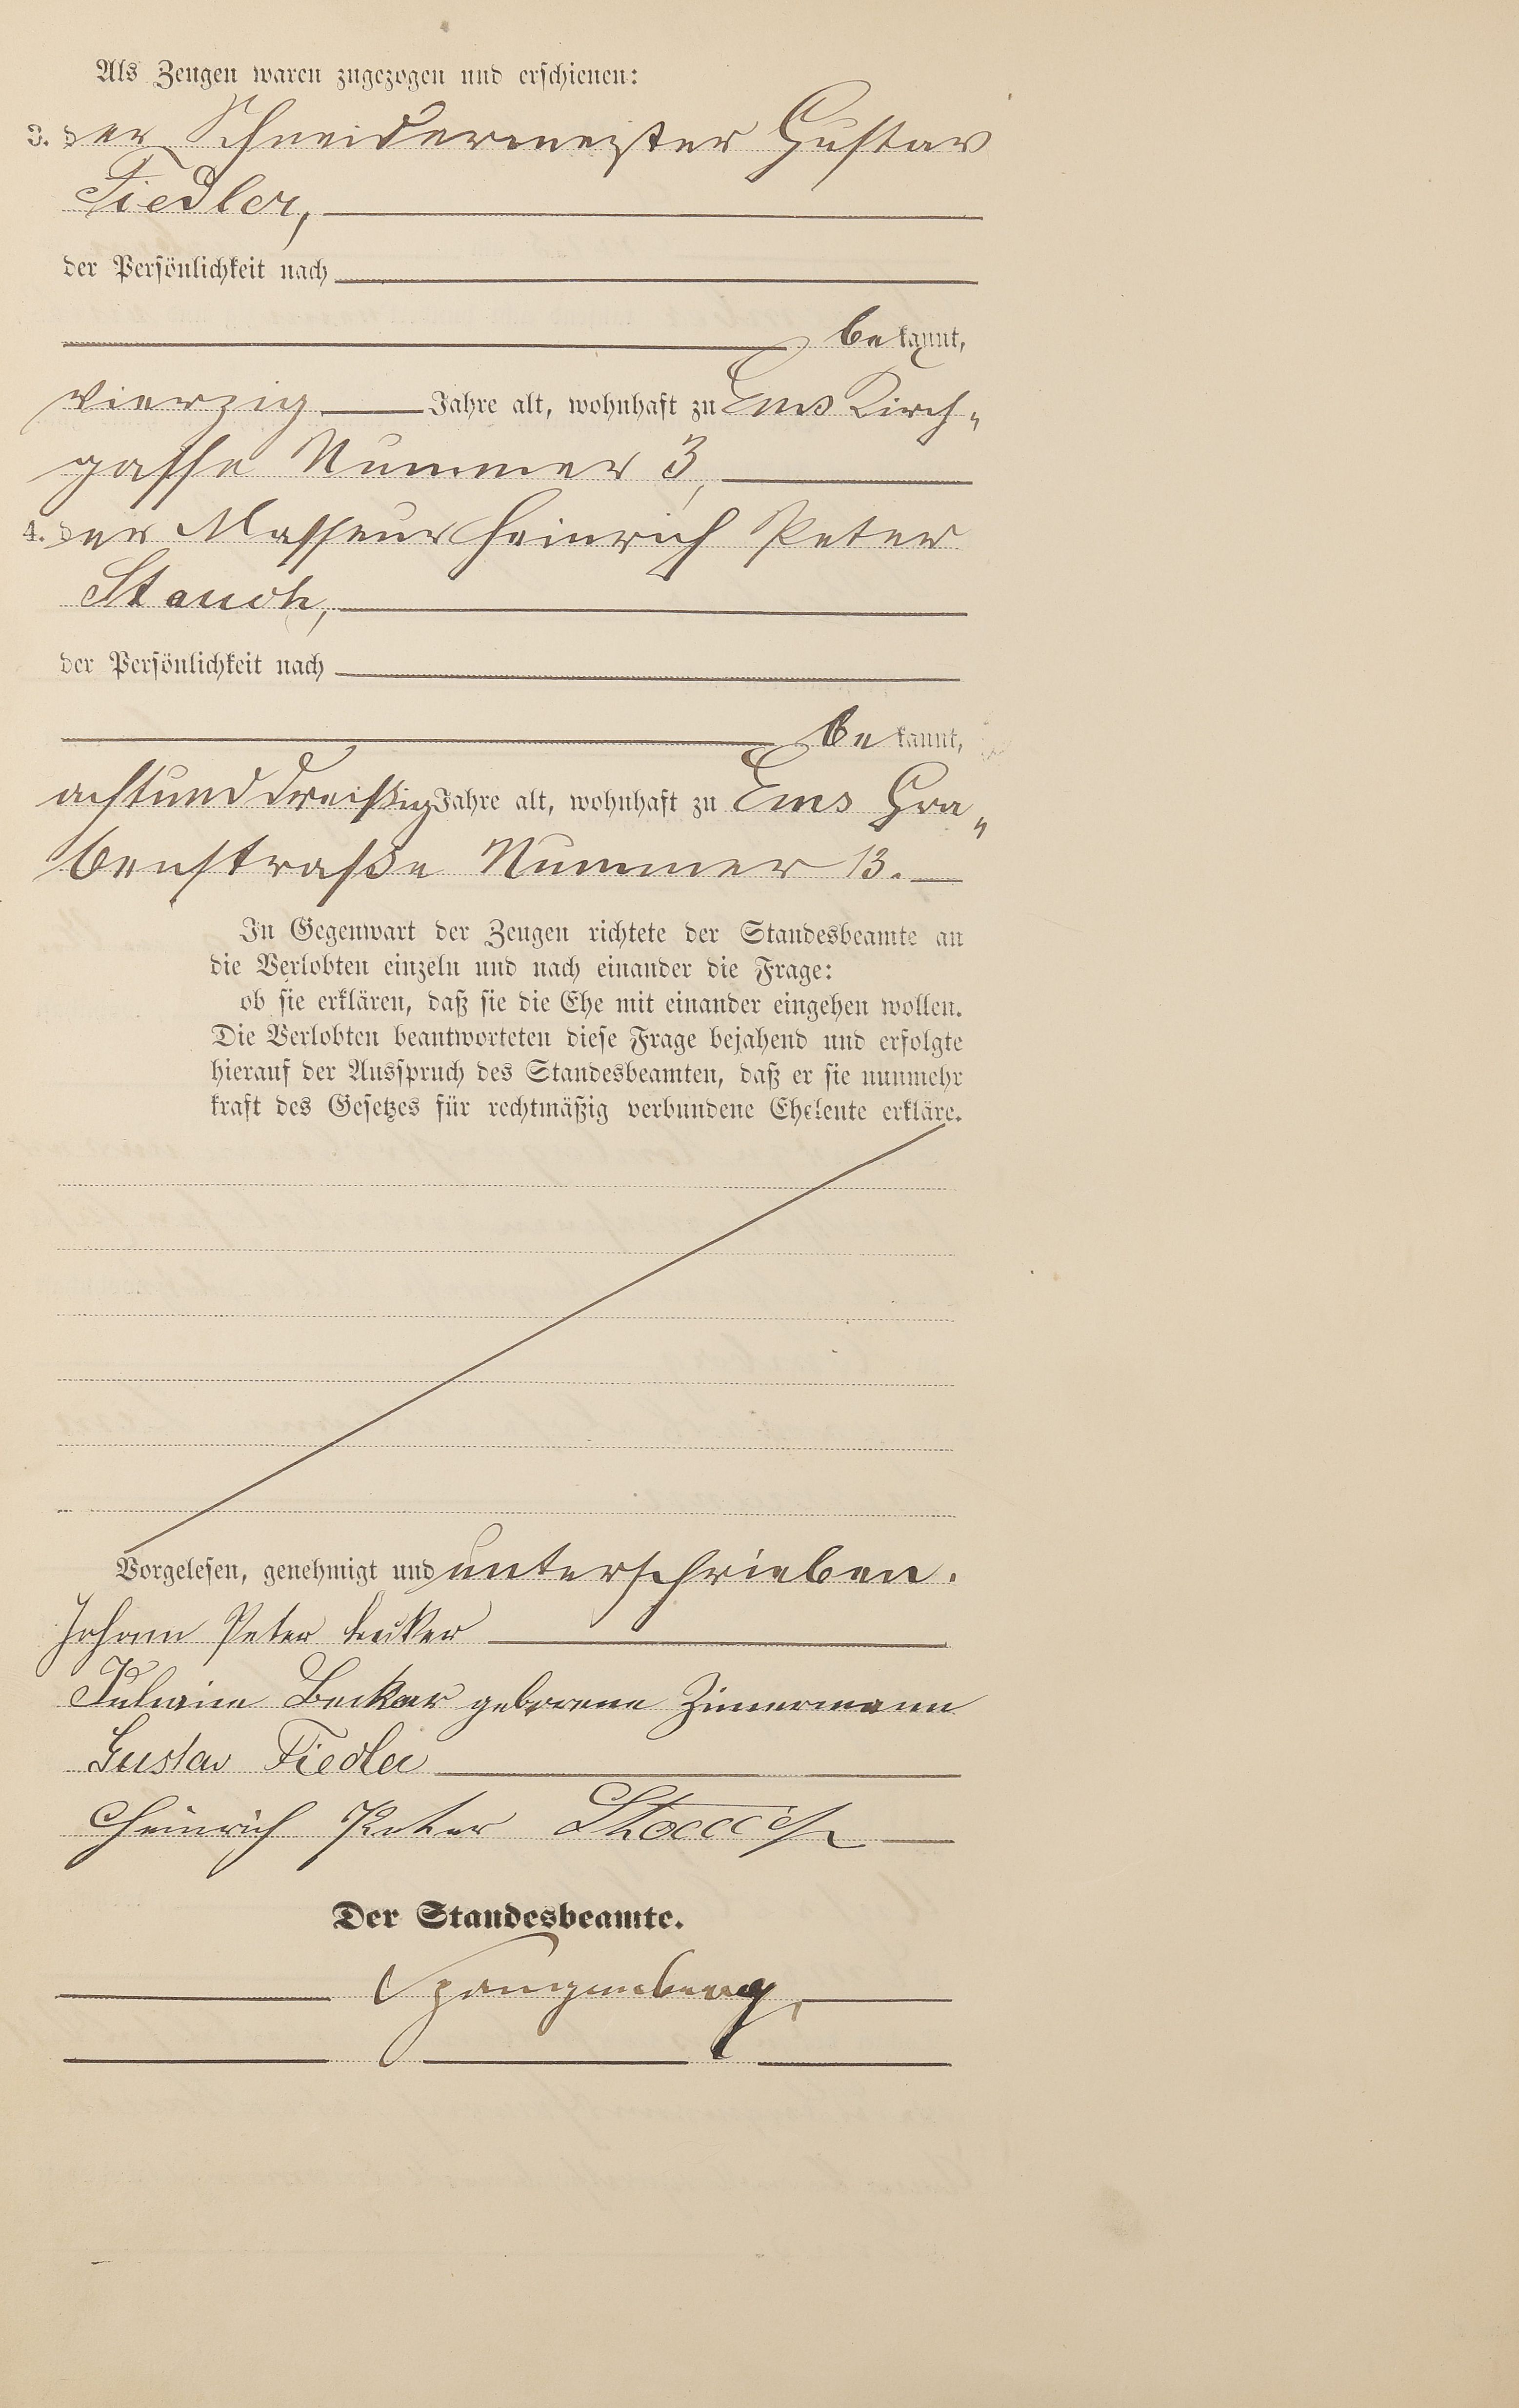 Als Zeugen waren zugezogen und erschienen:
3. der Schneidermeister Gustav
Fiedler,
der Persönlichkeit nach
bekannt,
vierzig Jahre alt, wohnhaft zu Ems Kirch-
gasse Nummer 3,
4. der Masseur Heinrich Peter
Stauch,
der Persönlichkeit nach
bekannt,
achtunddreißig Jahre alt, wohnhaft zu Ems Gra-
benstraße Nummer 13.
In Gegenwart der Zeugen richtete der Standesbeamte an
die Verlobten einzeln und nach einander die Frage:
ob sie erklären, daß sie die Ehe mit einander eingehen wollen.
Die Verlobten beantworteten diese Frage bejahend und erfolgte
hierauf der Ausspruch des Standesbeamten, daß er sie nunmehr
kraft des Gesetzes für rechtmäßig verbundene Eheleute erkläre.
Vorgelesen, genehmigt und unterschrieben.
Johann Peter Becker
Becker geborene Zimmermann
Gustav Fiedler
Heinrich Peter Stauch
Der Standesbeamte.
Spangenberg